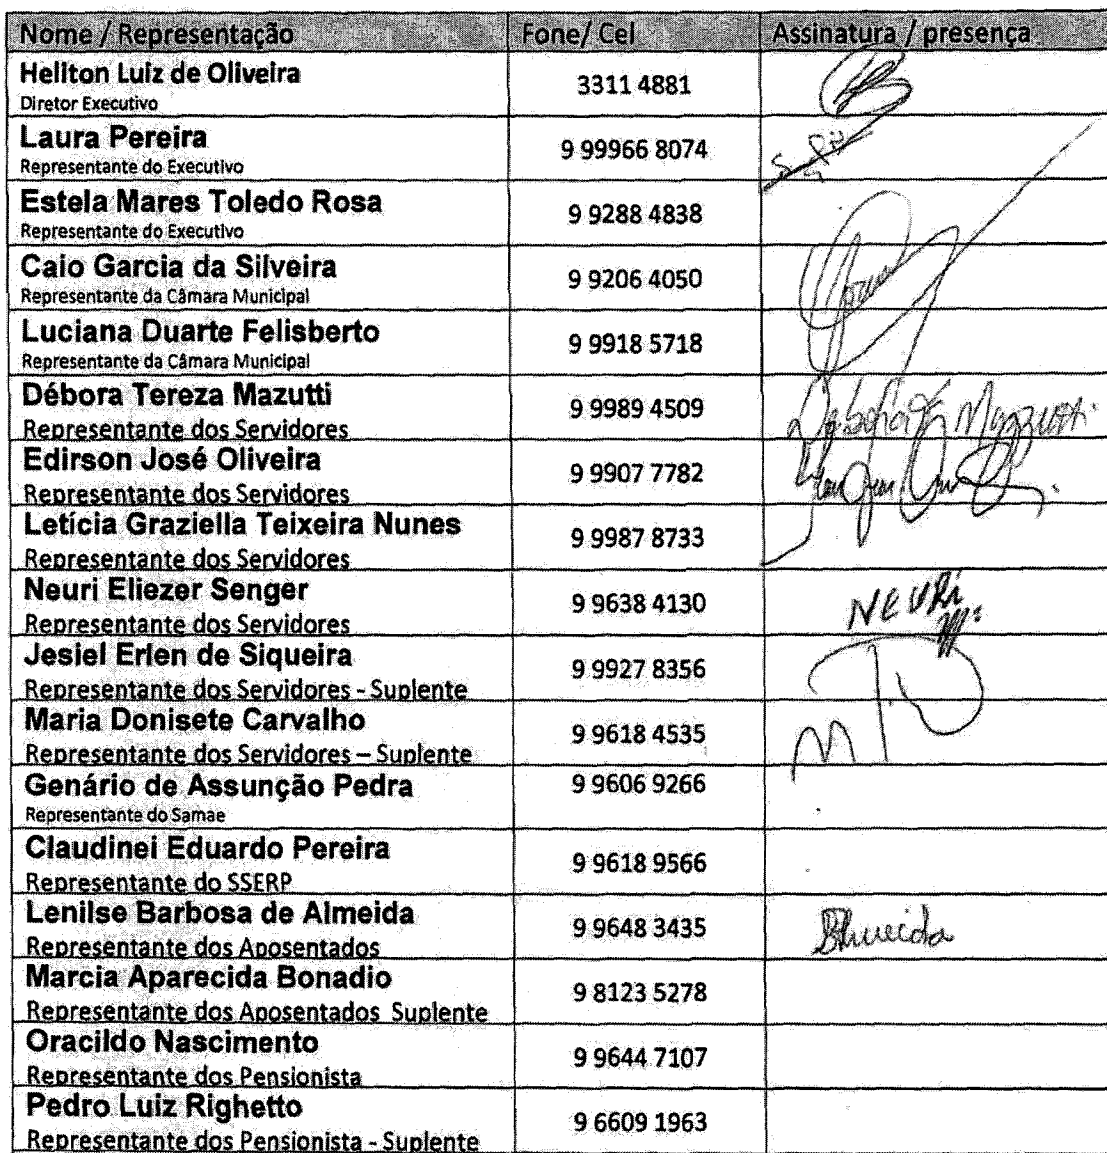 Nome / Representação Fone/ Cel Assinatura / presença
Heliton Luiz de Oliveira
Diretor Executivo
3311 4881
Laura Pereira
Representante do Executivo
9 99966 8074
Estela Mares Toledo Rosa
Representante do Executivo
9 9288 4838
Caio Garcia da Silveira
Representante da Câmara Municipal
9 9206 4050
Luciana Duarte Felisberto
Representante da Câmara Municipal
9 9918 5718
Débora Tereza Mazutti
Representante dos Servidores
9 9989 4509
Edirson José Oliveira
Representante dos Servidores
9 9907 7782
Letícia Graziella Teixeira Nunes
Representante dos Servidores
9 9987 8733
Neuri Eliezer Senger
Representante dos Servidores
9 9638 4130
NEURI
Jesiel Erlen de Siqueira
Representante dos Servidores - Suplente
9 9927 8356
Maria Donisete Carvalho
Representante dos Servidores – Suplente
9 9618 4535
Genário de Assunção Pedra
Representante do Samae
9 9606 9266
Claudinei Eduardo Pereira
Representante do SSERP
9 9618 9566
Lenilse Barbosa de Almeida
Representante dos Aposentados
9 9648 3435
Almeida
Marcia Aparecida Bonadio
Representante dos Aposentados Suplente
9 8123 5278
Oracildo Nascimento
Representante dos Pensionista
9 9644 7107
Pedro Luiz Righetto
Representante dos Pensionista - Suplente
9 6609 1963